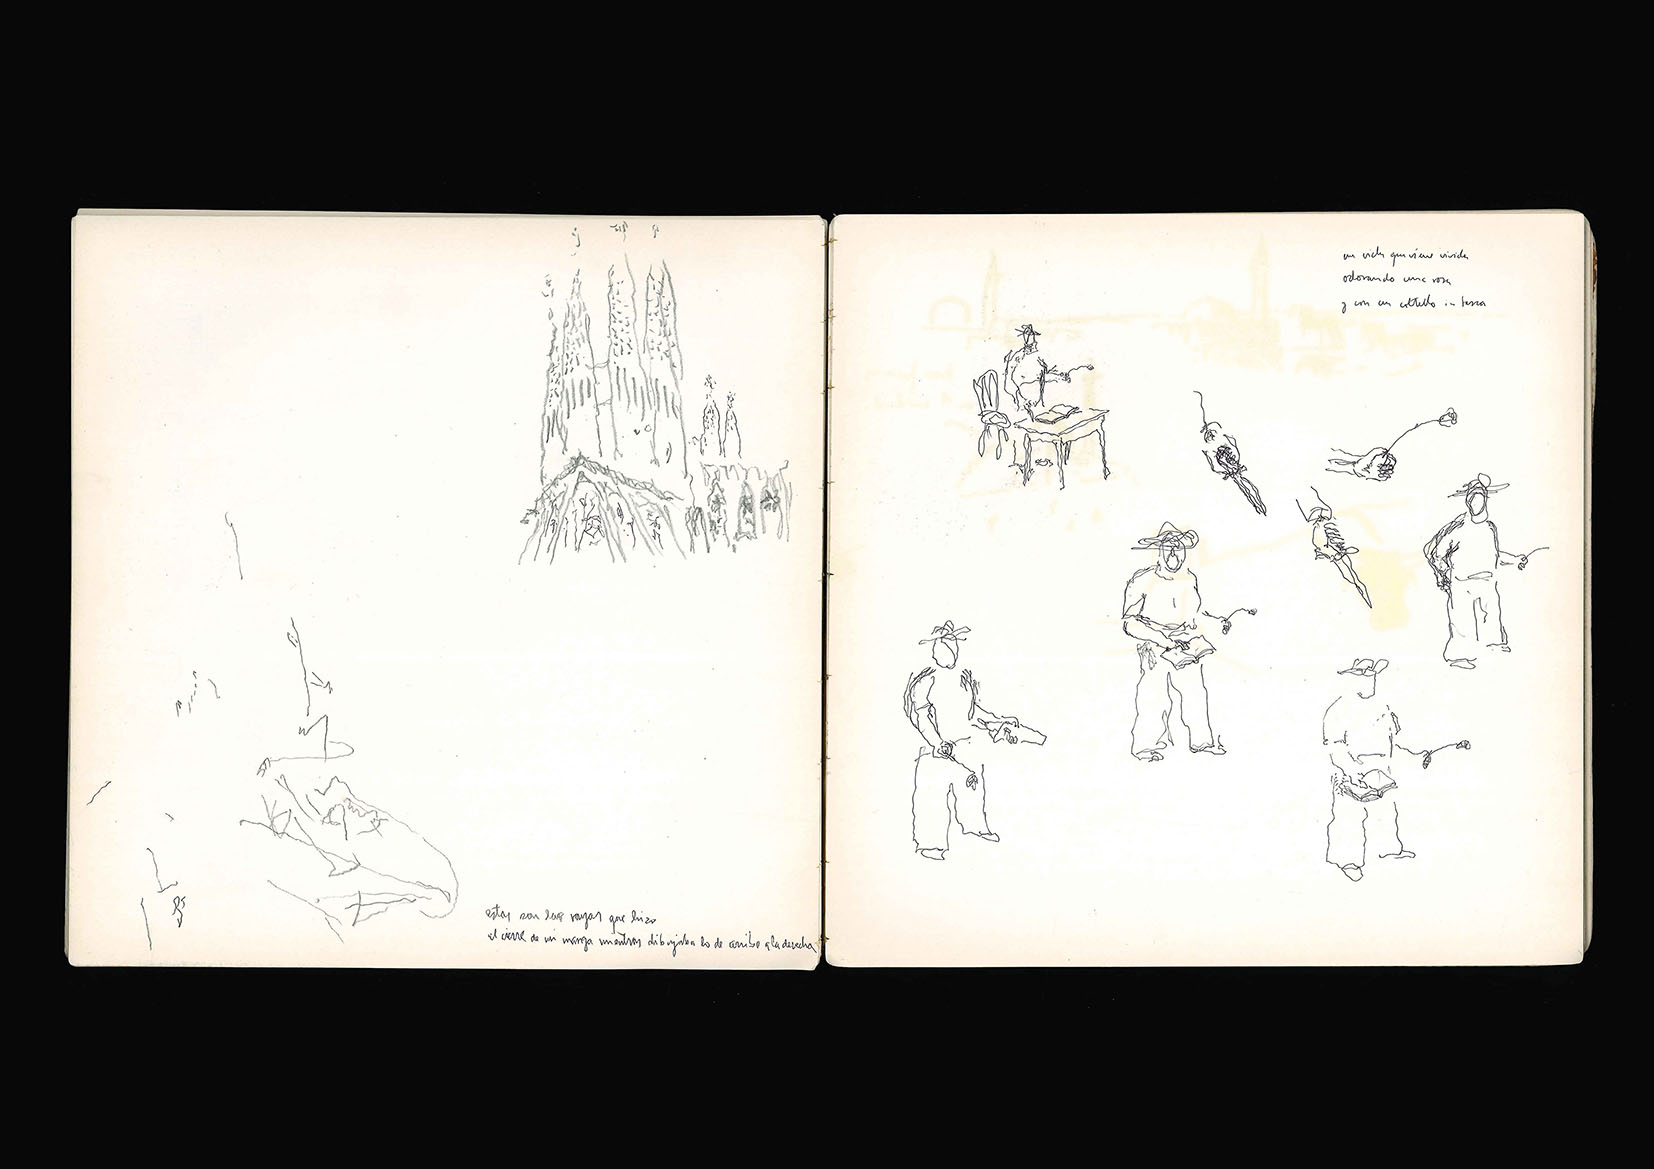 estas son las rayas que hizo
el cierre de mi manga mientras dibujaba lo de arriba a la derecha
una vida quisiera vivida
odorando una rosa
y con un coltello in tasca